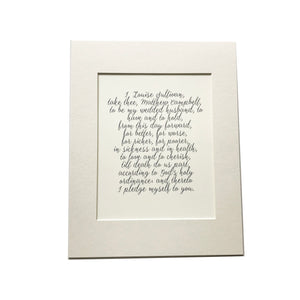 I, Louise Sullivan,
take thee, Matthew Campbell,
to be my wedded husband, to
have and to hold,
from this day forward,
for better, for worse,
for richer, for poorer,
in sickness and in health,
to love and to cherish,
till death do us part,
according to God's holy
ordinance; and thereto
I pledge myself to you.